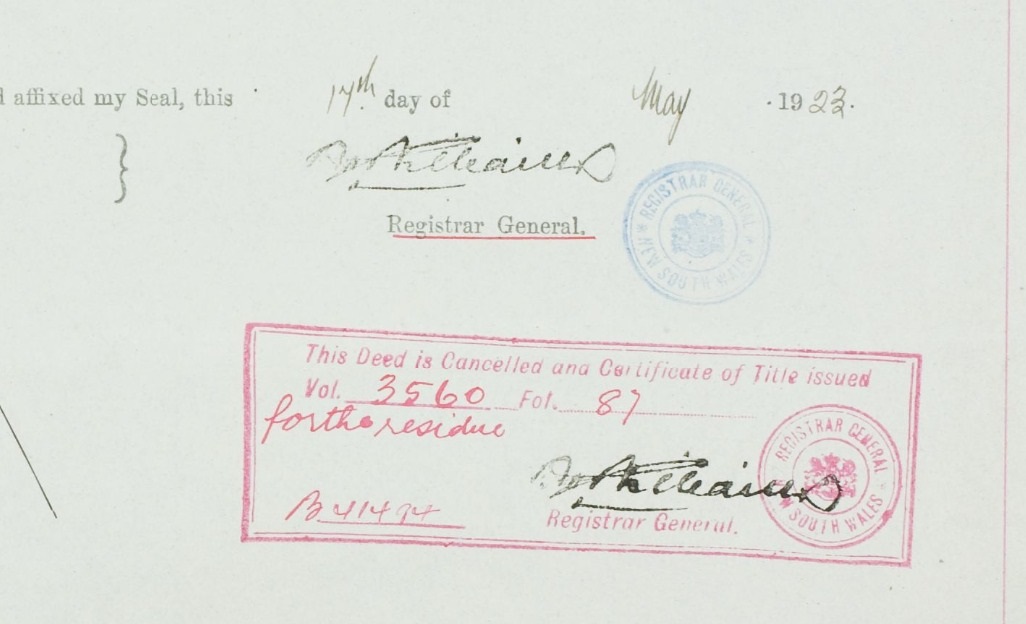 d affixed my Seal, this 17th day of May 1923.
Registrar General.
REGISTRAR GENERAL NEW SOUTH WALES
This Deed is Cancelled and Certificate of Title issued
Vol. 3560 Fol. 87
for the residue
REGISTRAR GENERAL SOUTH WALES
B 41494
Registrar General.